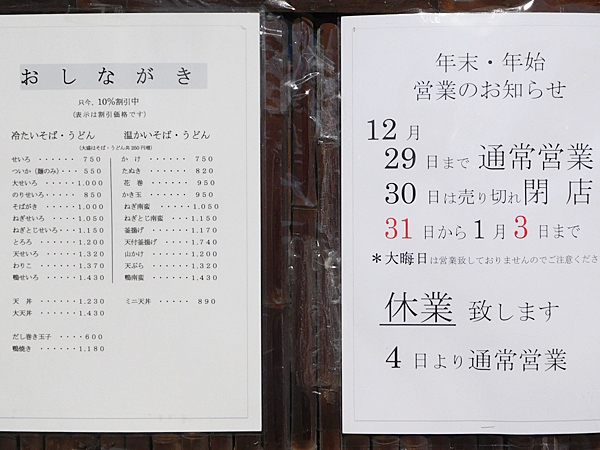 おしながき
只今、10%割引中
(表示は割引価格です)
冷たいそば・うどん 温かいそば・うどん
(大盛はそば・うどん共250円増)
せいろ ・・・・・・ 750
ついか (麺のみ)・・・ 550
大せいろ ・・・・・1.000
のりせいろ ・・・・ 850
そばがき ・・・・・1.000
ねぎせいろ ・・・・1.050
ねぎとじせいろ・・・1.150
とろろ ・・・・・・1.200
天せいろ ・・・・・1.320
わりこ ・・・・・・1.370
鴨せいろ ・・・・・1.430
かけ ・・・・・・ 750
たぬき ・・・・・ 820
花巻 ・・・・・・ 950
かき玉 ・・・・・ 950
ねぎ南蛮 ・・・・1.050
ねぎとじ南蛮 ・・1.150
釜揚げ ・・・・・1.170
天付釜揚げ ・・・1.740
山かけ ・・・・・1.200
天ぷら ・・・・・1.320
鴨南蛮 ・・・・・1.430
天丼 ・・・・・・・1.230
大天丼 ・・・・・・1.430
ミニ天丼 ・・・・ 890
だし巻き玉子 ・・・・600
鴨焼き ・・・・・・1.180
年末・年始
営業のお知らせ
12月
29日まで 通常営業
30日は売り切れ閉店
31日から1月3日まで
*大晦日は営業致しておりませんのでご注意くださ
休業 致します
4日より通常営業